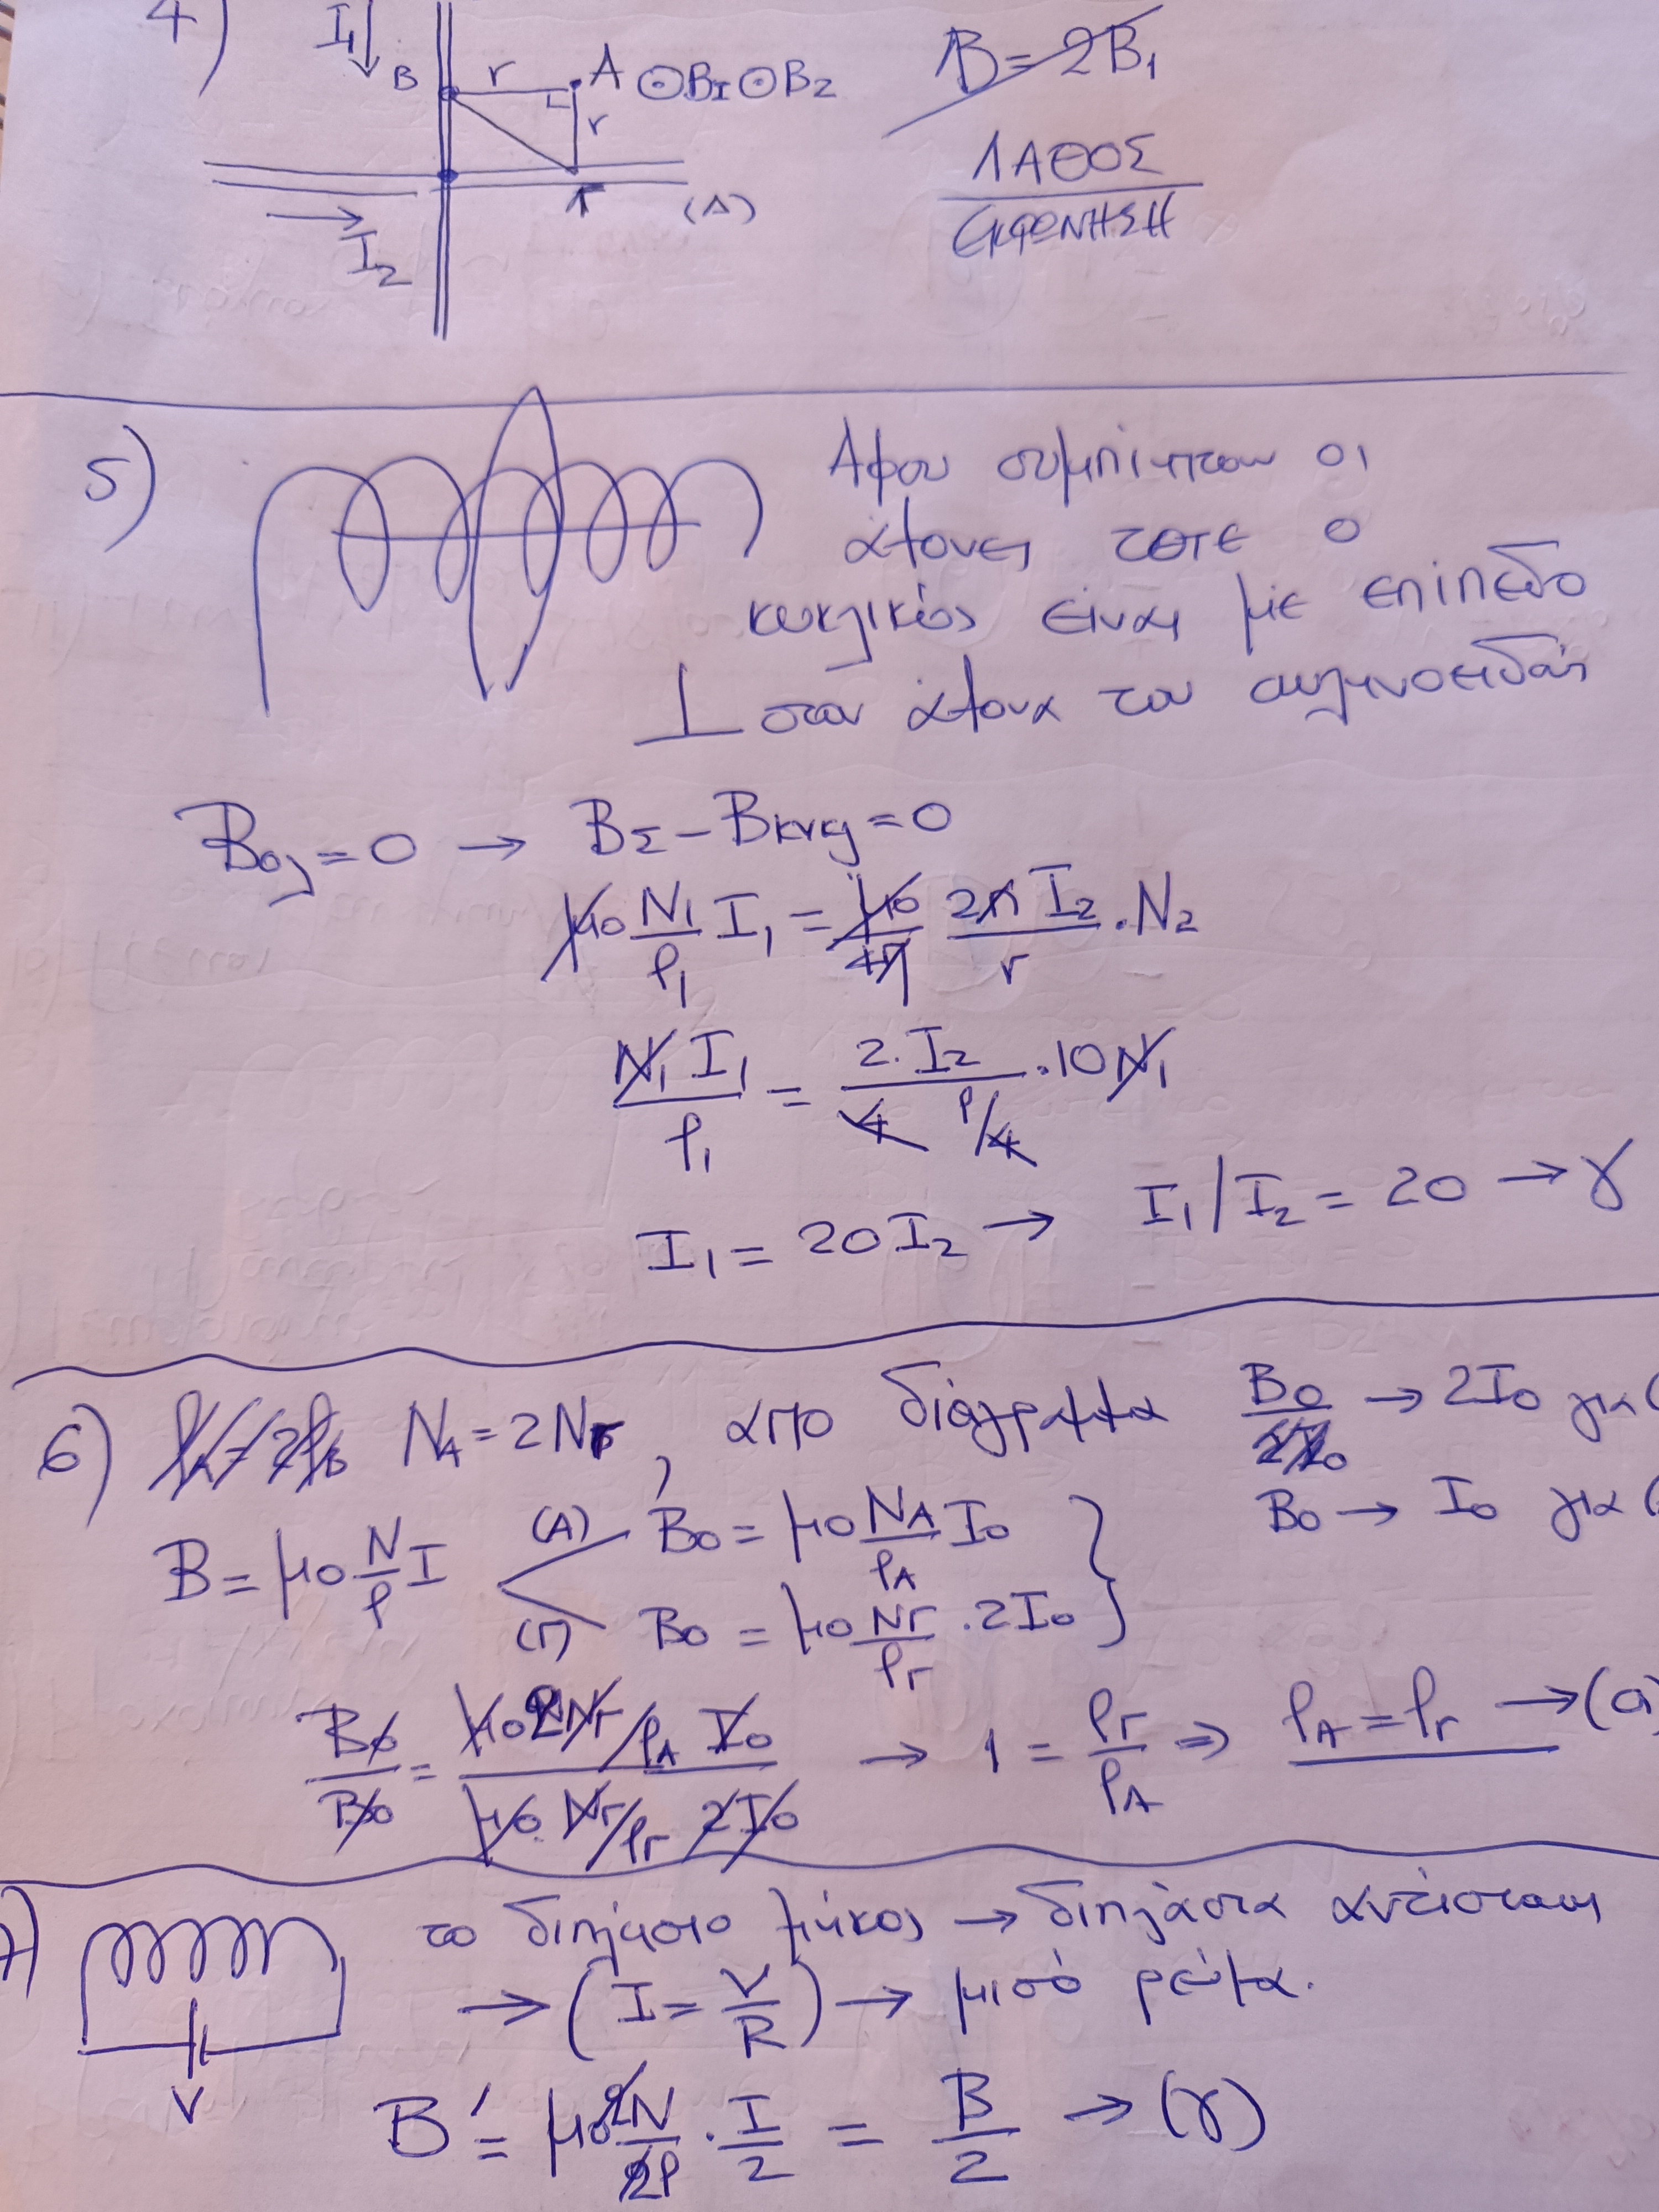 4) I₁ ↓ B r A ⊙B₁ ⊙B₂ B = 2B₁
r
ΛΑΘΟΣ
Γ (Δ) ΕΚΦΩΝΗΣΗ
→
I₂
5) Αφου συμπίπτουν οι
άξονες τοτε ο
κυκλικός είναι με επίπεδο
⊥ στον άξονα του σωληνοειδούς
Bολ = 0 → BΣ − Bκυκλ = 0
μ0 N₁/ℓ₁ I₁ = μ0/4π 2π I₂/r · N₂
N₁ I₁/ℓ₁ = 2·I₂/(4 ℓ/4) · 10N₁
I₁ = 20I₂ → I₁/I₂ = 20 → γ
6) N_A = 2N_Γ, απο διάγραμμα B0 → 2I0 για (
B0 → I0 για (
B = μ0 N/ℓ I (A) B0 = μ0 N_A/ℓ_A I0
(Γ) B0 = μ0 N_Γ/ℓ_Γ · 2I0
B0/B0 = (μ0 2N_Γ/ℓ_A I0)/(μ0 N_Γ/ℓ_Γ 2I0) → 1 = ℓ_Γ/ℓ_A ⇒ ℓ_A = ℓ_Γ → (α)
7) το διπλάσιο μήκος → διπλάσια αντίσταση
→ (I = V/R) → μισό ρεύμα.
V
B′ = μ0 2N/2ℓ · I/2 = B/2 → (γ)